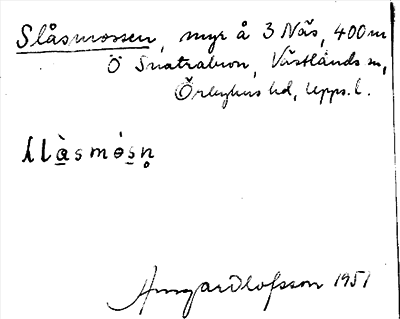 Slåsmossen, myr å 3 Näs, 400 m
Ö Snatrabron, Västlands sn,
Örbyhus hd, Upps. l.
Ingar Olofsson 1951